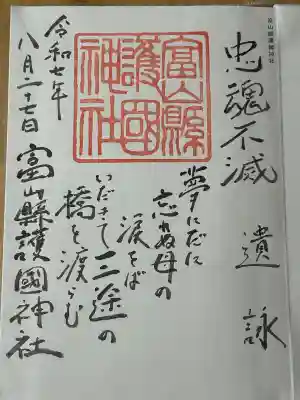 富山縣護國神社
忠魂不滅
遺詠
夢にだに
忘れぬ母の
涙をば
いだきて三途の
橋を渡らむ
富山縣護國神社
富山縣護國神社
令和七年
八月二十七日